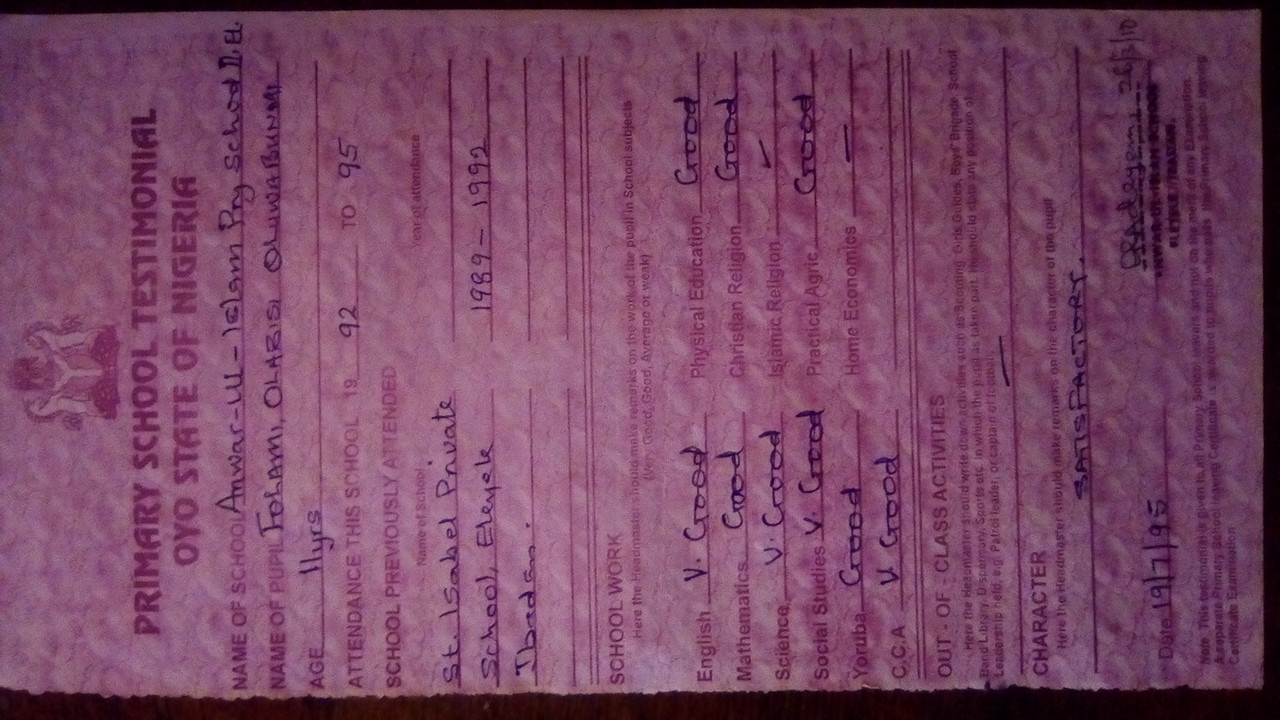 PRIMARY SCHOOL TESTIMONIAL
OYO STATE OF NIGERIA
NAME OF SCHOOL Anwar-ul-Islam Pry School
NAME OF PUPIL Tohami, OLABISI OLUWABUNMI
AGE 11yrs
ATTENDANCE THIS SCHOOL 19 92 TO 95
SCHOOL PREVIOUSLY ATTENDED
Name of School Year of attendance
St. Isabel Private
School, Eleyele 1989 - 1992
Ibadan.
SCHOOL WORK
Here the Headmaster should make remarks on the work of the pupil in School subjects
(Very Good, Good, Average or weak)
English V. Good Physical Education Good
Mathematics Good Christian Religion Good
Science V. Good Islamic Religion —
Social Studies V. Good Practical Agric. Good
Yoruba Good Home Economics —
C.C.A V. Good
OUT - OF - CLASS ACTIVITIES
Here the Headmaster should write down activities such as Scouting, Girls Guides, Boys' Brigade School
Band Library, Discernory, Sports etc. in which the pupil as taken part. He should state any position of
Leadership held, e.g. Patrol leader, or captain of football
—
CHARACTER
Here the Headmaster should make remarks on the character of the pupil
SATISFACTORY.
Date 19/7/95
Note This testimonial is given to all Primary School leavers and not on the merit of any Examination.
A separate Primary School leaving Certificate is awarded to pupils who pass the Primary School leaving
Certificate Examination